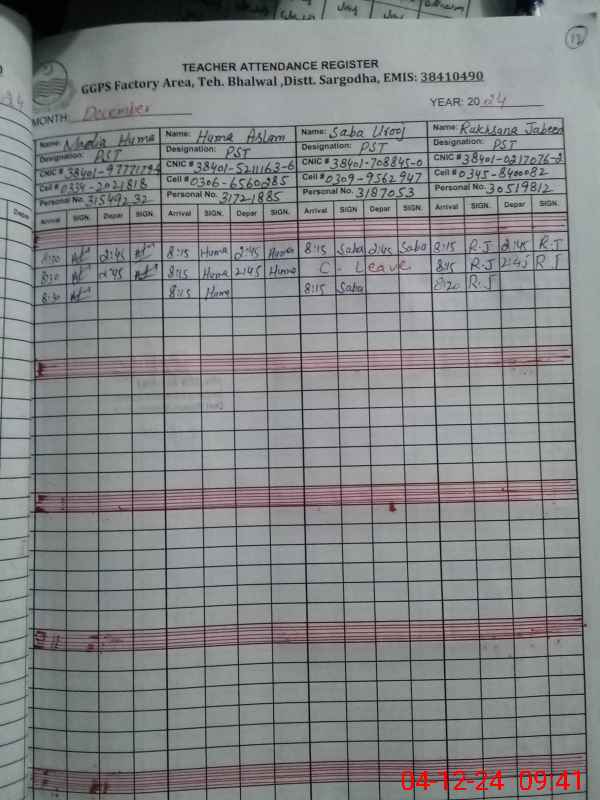 12
TEACHER ATTENDANCE REGISTER
GGPS Factory Area, Teh. Bhalwal ,Distt. Sargodha, EMIS: 38410490
MONTH: December YEAR: 2024
Name: Nadia Huma Name: Huma Aslam Name: Saba Urooj Name: Rukhsana Jabeen
Designation: PST Designation: PST Designation: PST Designation: PST
CNIC # 38401-9777179 CNIC # 38401-5211163-6 CNIC # 38401-708845-0 CNIC # 38401-0217076-2
Cell # 0334-2021818 Cell # 0306-6560285 Cell # 0309-9562947 Cell # 0345-8400082
Personal No. 31549232 Personal No. 31721885 Personal No. 3187053 Personal No. 30519812
Arrival SIGN. Depar SIGN. Arrival SIGN. Depar SIGN. Arrival SIGN Depar SIGN. Arrival SIGN. Depar SIGN.
2:45 8:15 Huma 2:45 Huma 8:15 Saba 2:45 Saba 8:15 R.J 2:45 R.J
8:30 2:45 8:15 Huma 2:45 Huma C. Leave 8:15 R.J 2:45 R.J
8:30 8:15 Huma 8:15 Saba 8:20 R.J
04-12-24 09:41